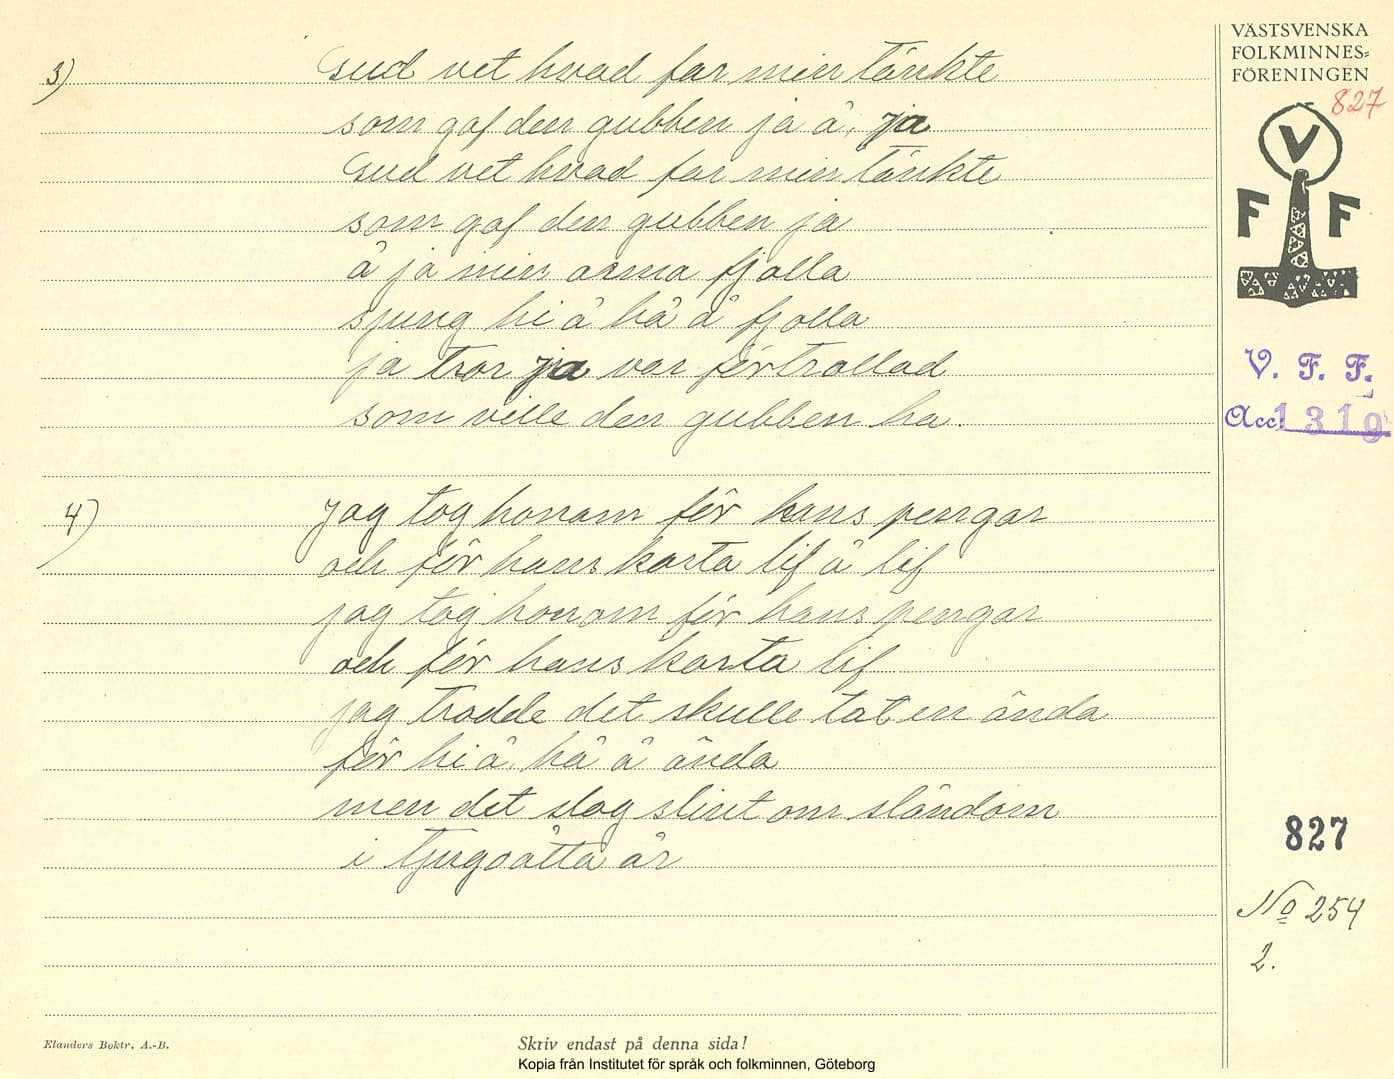 VÄSTSVENSKA
FOLKMINNES-
FÖRENINGEN
827
V
F F
V. F. F.
Acc. 1319
3) Gud vet hvad far min tänkte
som gaf den gubben ja å, ja
Gud vet hvad far min tänkte
som gaf den gubben ja
å ja min arma fjolla
sjung hi å hå å fjolla
ja tror ja var förtrollad
som ville den gubben ha.
4) Jag tog honom för hans pengar
och för hans korta lif å lif
jag tog honom för hans pengar
och för hans korta lif
jag trodde det skulle tat en ända
för hi å hå å ända
men det slog slint om sländom
i tjugoåtta år
827
No 254
2.
Elanders Boktr. A.-B.
Skriv endast på denna sida!
Kopia från Institutet för språk och folkminnen, Göteborg